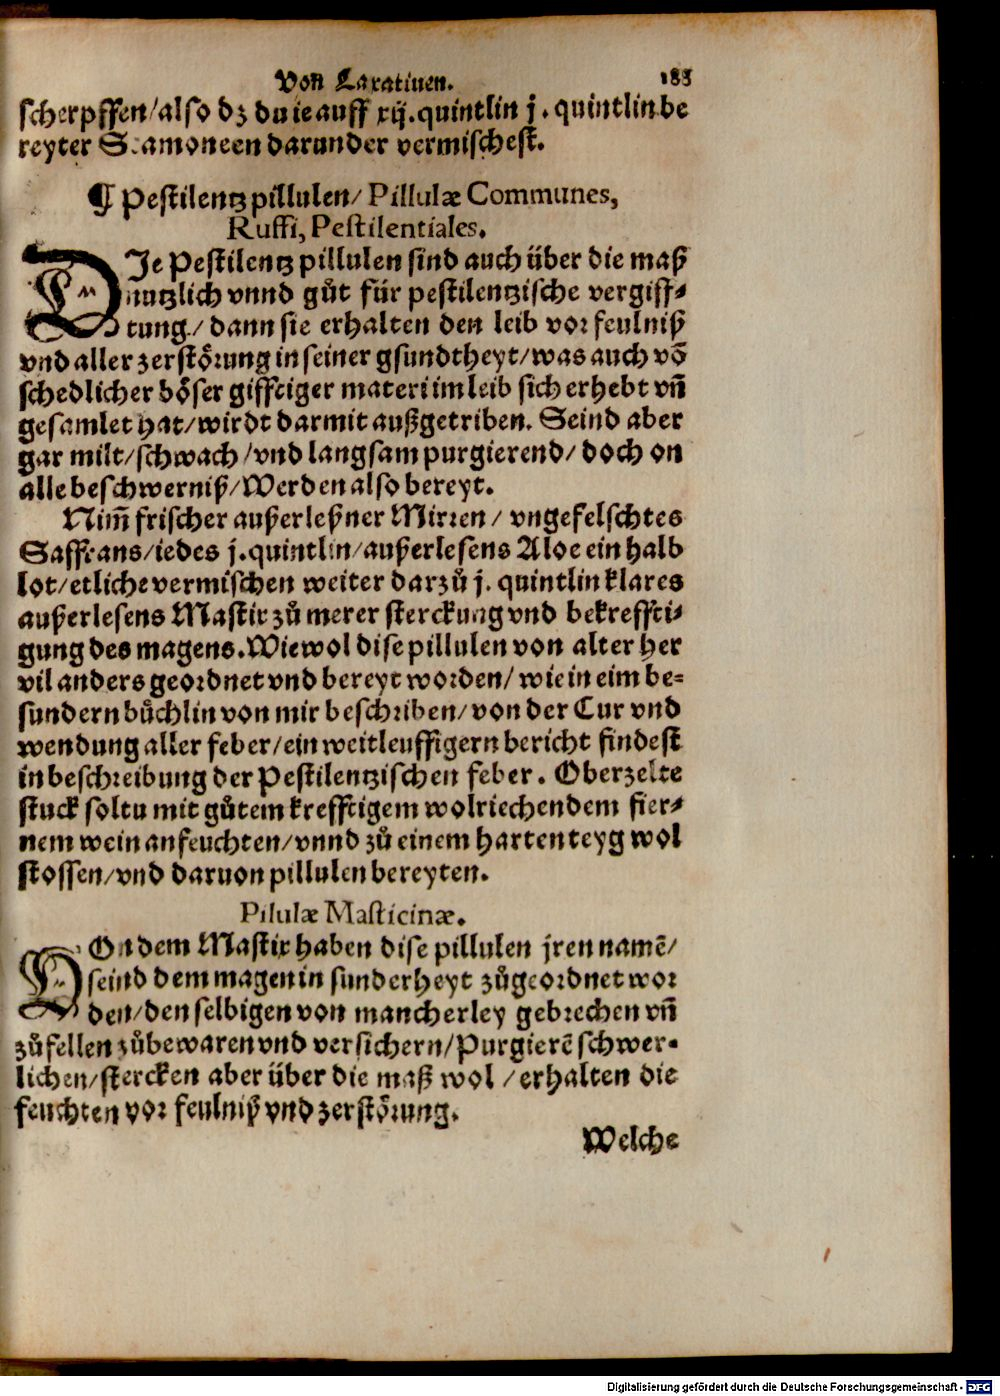 Von Laxatiuen. 183
scherpffen/also dz du ie auff xij. quintlin j. quintlin be
reyter Scamoneen darunder vermischest.
¶ Pestilentz pillulen/ Pillulæ Communes,
Ruffi, Pestilentiales.
DJe Pestilentz pillulen sind auch über die maß
nutzlich vnnd gůt für pestilentzische vergiff⸗
tung/ dann sie erhalten den leib vor feulniß
vnd aller zerstörung in seiner gsundtheyt/was auch vō
schedlicher böser gifftiger materi im leib sich erhebt vn̄
gesamlet hat/wirdt darmit außgetriben. Seind aber
gar milt/schwach/vnd langsam purgierend/ doch on
alle beschwerniß/Werden also bereyt.
Nim̄ frischer außerleßner Mirren/ vngefelschtes
Saffrans/iedes j. quintlin/außerlesens Aloe ein halb
lot/etliche vermischen weiter darzů j. quintlin klares
außerlesens Mastix zů merer sterckung vnd bekreffti⸗
gung des magens. Wiewol dise pillulen von alter her
vil anders geordnet vnd bereyt worden/ wie in eim be⸗
sundern bůchlin von mir beschriben/von der Cur vnd
wendung aller feber/ein weitleuffigern bericht findest
in beschreibung der Pestilentzischen feber. Oberzelte
stuck soltu mit gůtem krefftigem wolriechendem fier⸗
nem wein anfeuchten/vnnd zů einem harten teyg wol
stossen/vnd daruon pillulen bereyten.
Pilulæ Masticinæ.
VOn dem Mastix haben dise pillulen jren namē/
seind dem magen in sunderheyt zůgeordnet wor
den/den selbigen von mancherley gebrechen vn̄
zůfellen zůbewaren vnd versichern/Purgierē schwer⸗
lichen/stercken aber über die maß wol/erhalten die
feuchten vor feulniß vnd zerstörung.
Welche
Digitalisierung gefördert durch die Deutsche Forschungsgemeinschaft - DFG